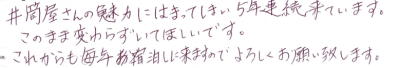 井筒屋さんの魅力にはまってしまい5年連続来ています。
このまま変わらずいてほしいです。
これからも毎年お宿泊しに来ますのでよろしくお願い致します。